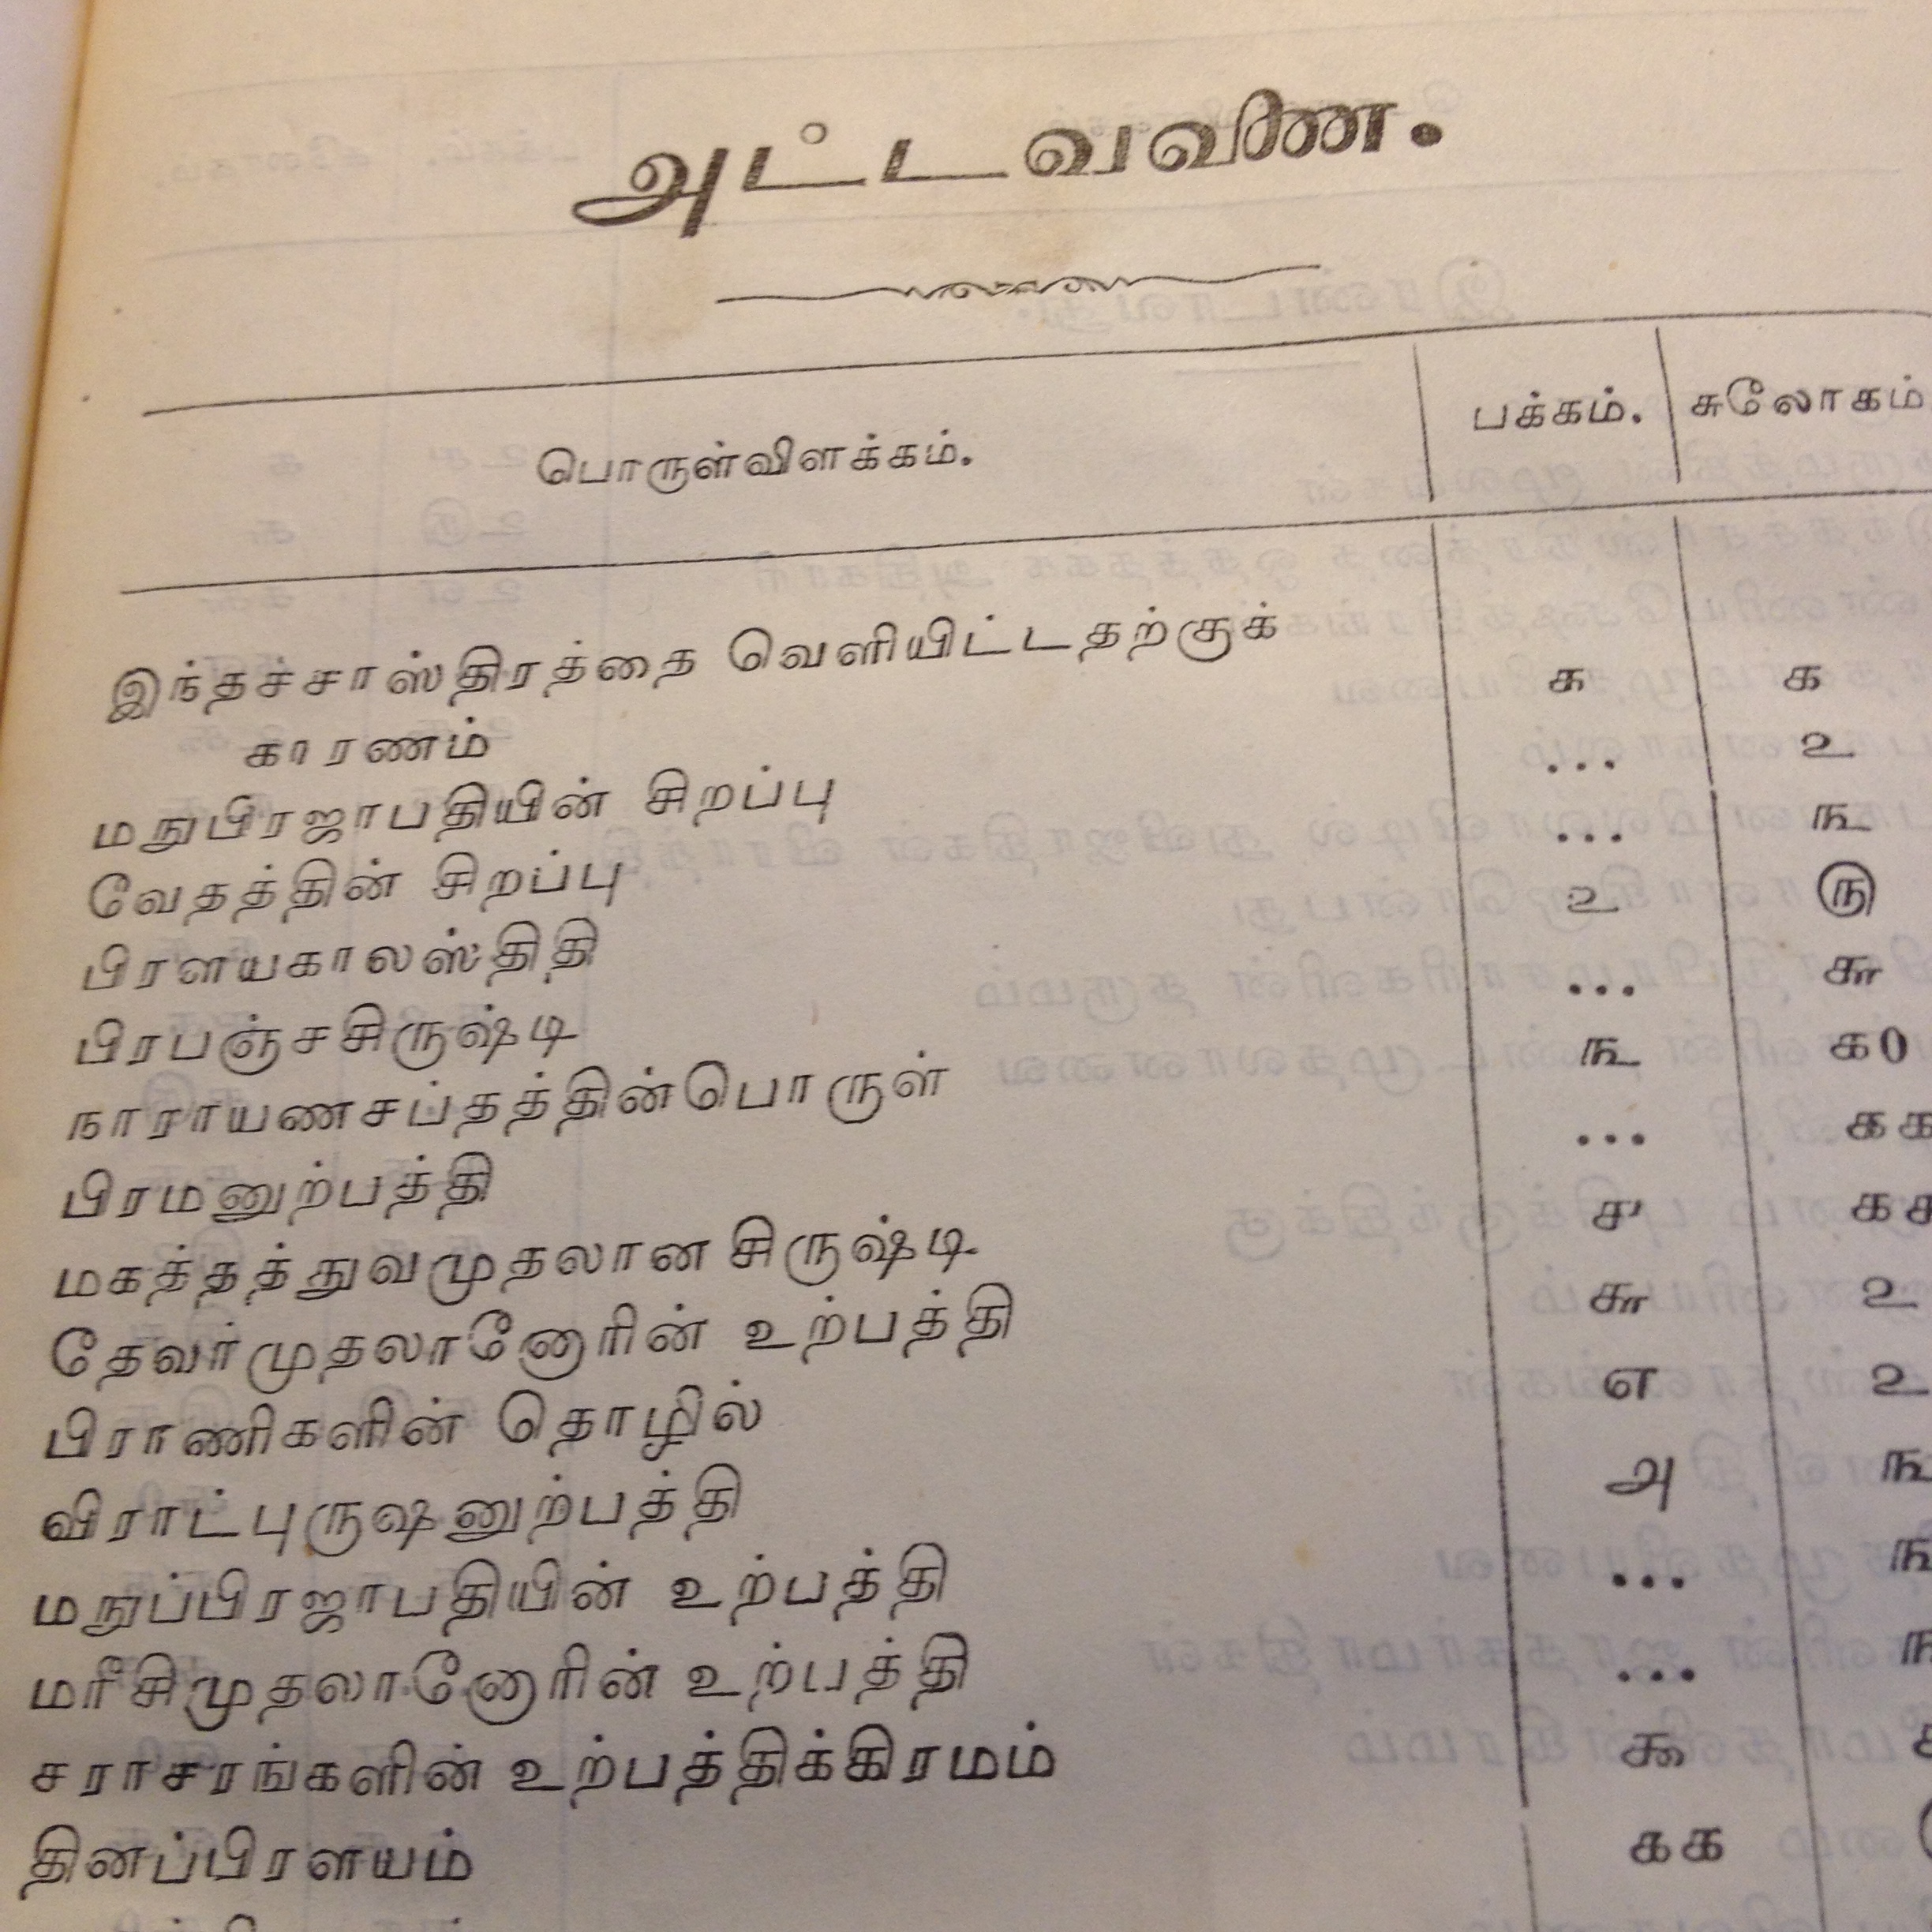 அட்டவணை.
பொருள்விளக்கம். பக்கம். சுலோகம்
இந்தச்சாஸ்திரத்தை வெளியிட்டதற்குக்
காரணம் க க
மநுபிரஜாபதியின் சிறப்பு ... உ
வேதத்தின் சிறப்பு ... ௩
பிரளயகாலஸ்திதி உ ௫
பிரபஞ்சசிருஷ்டி ... ௬
நாராயணசப்தத்தின்பொருள் ௩ க0
பிரமனுற்பத்தி ... கக
மகத்தத்துவமுதலான சிருஷ்டி ௪
தேவர்முதலானோரின் உற்பத்தி ௬
பிராணிகளின் தொழில் எ
விராட்புருஷனுற்பத்தி அ
மநுப்பிரஜாபதியின் உற்பத்தி ...
மரீசிமுதலானோரின் உற்பத்தி ...
சராசரங்களின் உற்பத்திக்கிரமம் ௯
தினப்பிரளயம் கக